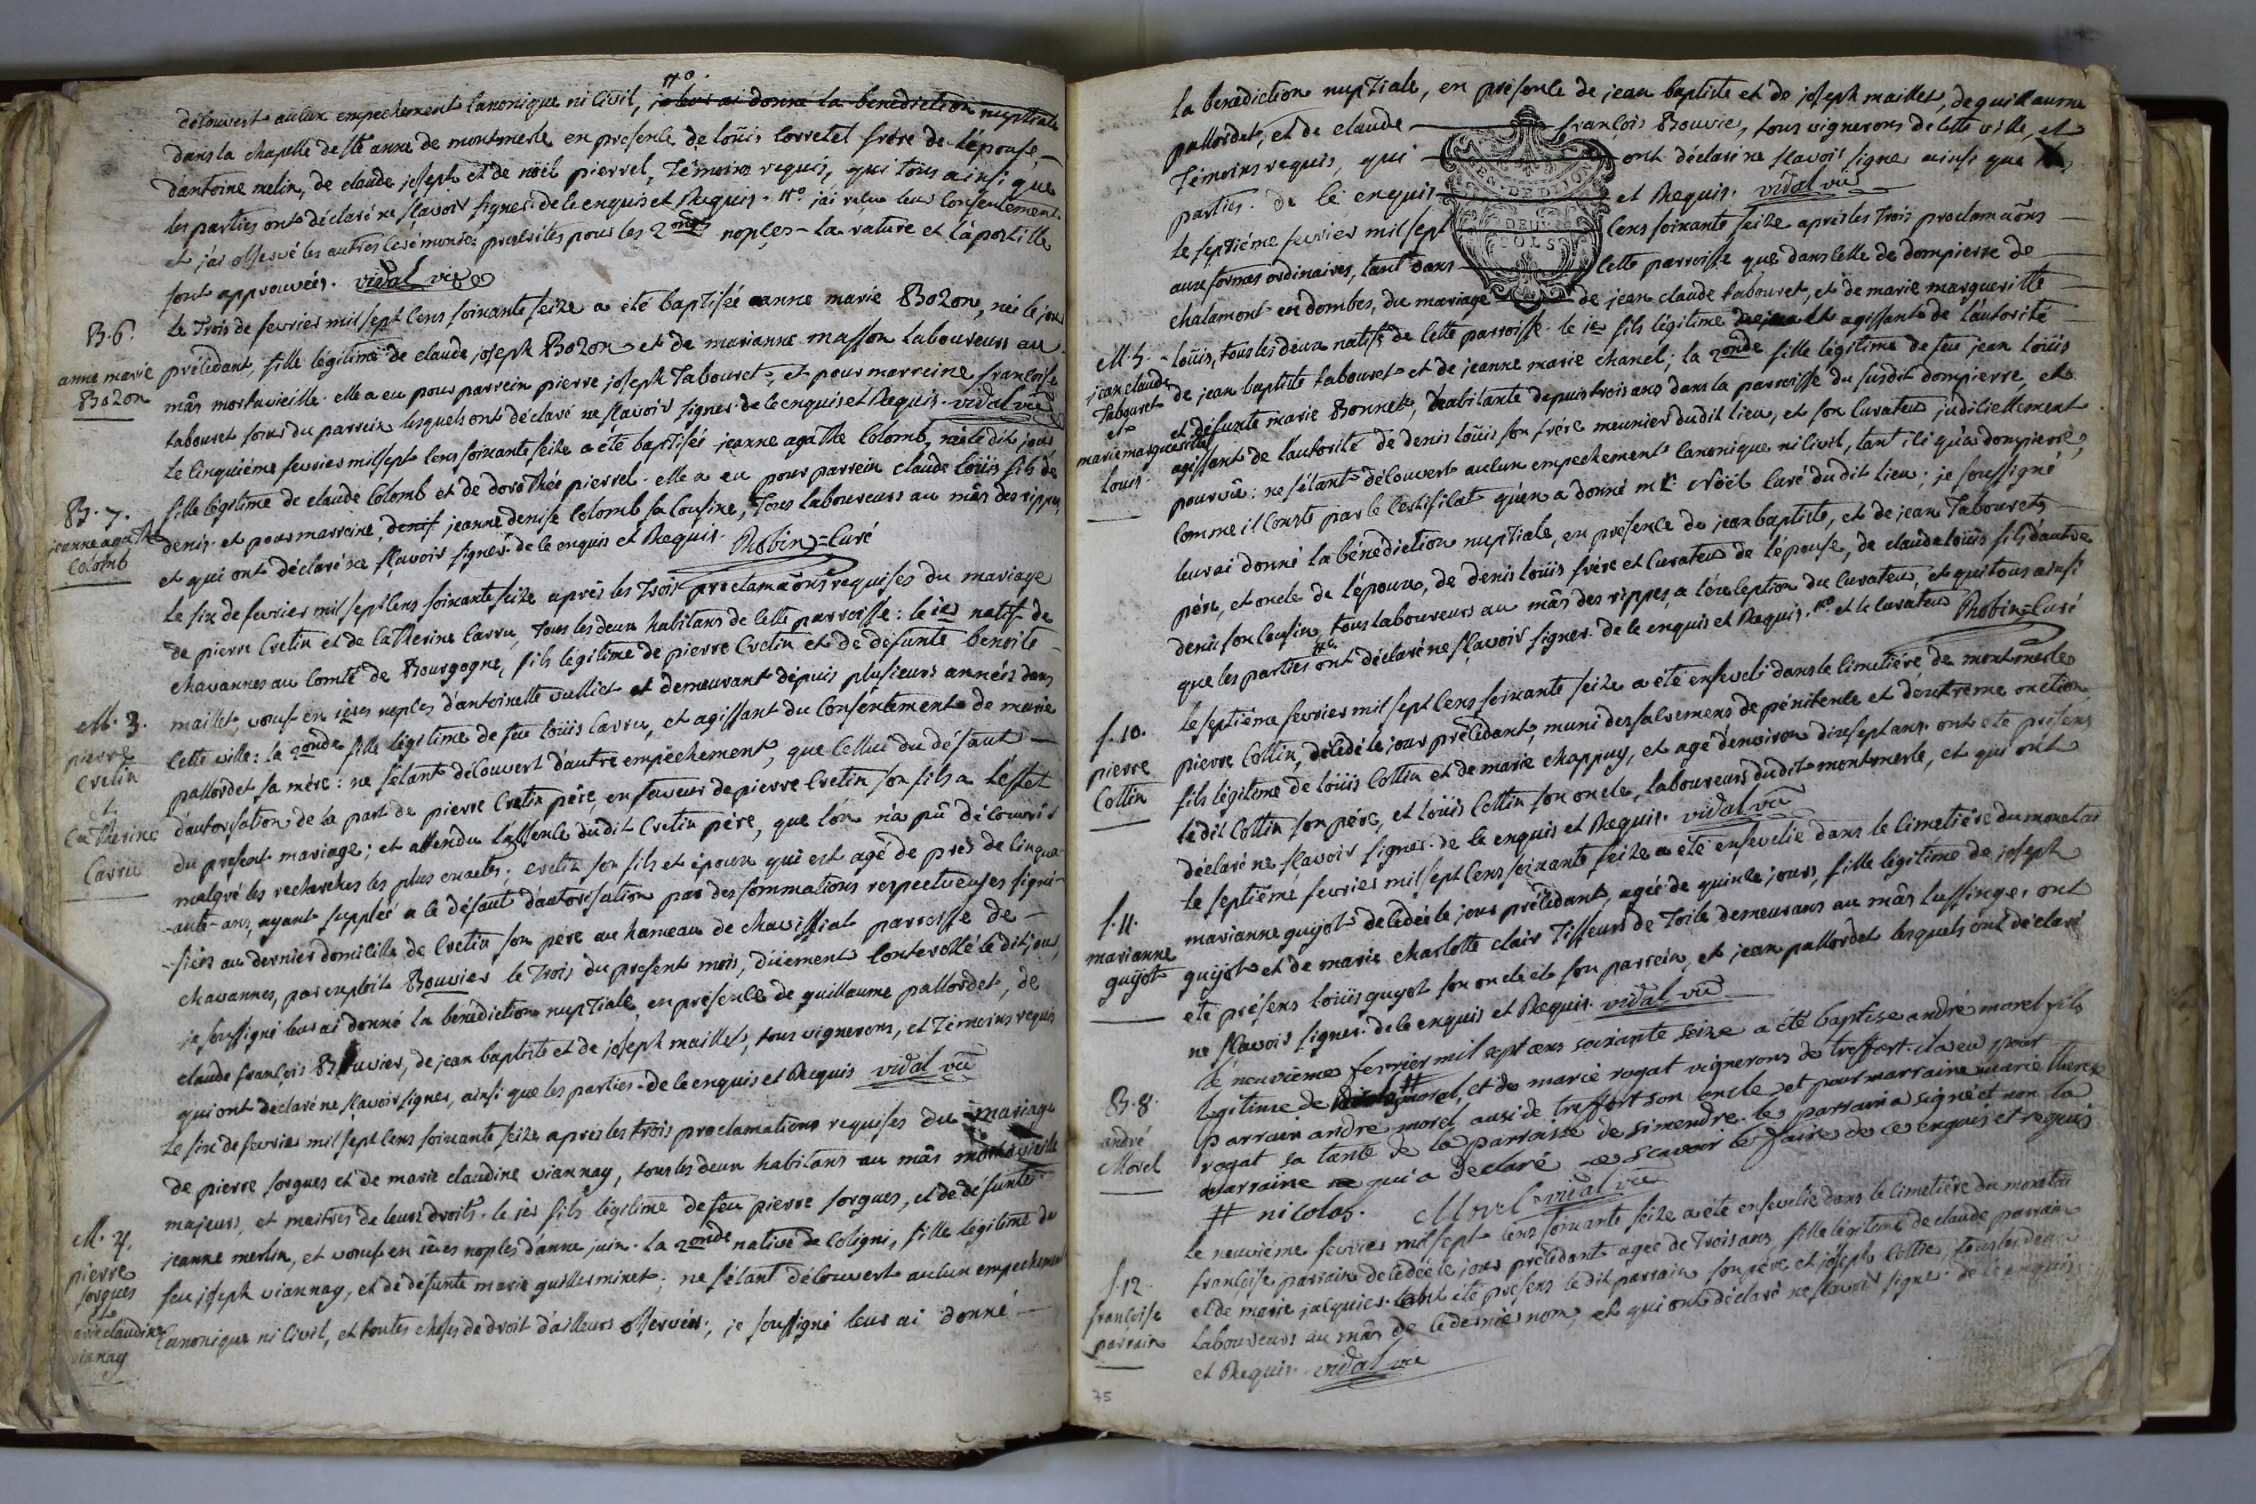 découvert aucun empechement Canonique ni Civil, #° je leur ai donné la benediction nuptiale
dans la chapelle de Ste anne de montmerle en presence de loüis Corretel frere de l'épouse,
d'antoine melin, de claude joseph et de nöël pierrel, Témoins requis, qui tous ainsi que
les parties ont déclaré ne sçavoir signer de ce enquis et Requis. #° j'ai relu leur Consentement
et j'ai observé les autres Cerémonies prescrites pour les 2ondes nopces - La rature et l'apostille
sont approuvées. vidal vic
B. 6.
anne marie
Bozon
Le Trois de fevrier mil sept Cens soixante seize a été baptisée anne marie Bozon, née le jour
précédant, fille légitime de claude joseph Bozon et de marianne masson Laboureurs au
mâs mortavieille. elle a eu pour parrein pierre joseph Tabouret, et pour marreine françoise
tabouret soeur du parrein lesquels ont déclaré ne sçavoir signer de ce enquis et Requis. vidal vic
B. 7.
jeanne agathe
Colomb
Le Cinquiéme fevrier mil sept Cens soixante seize a été baptisée jeanne agathe Colomb, née le dit jour
fille légitime de claude Colomb et de dorothée pierrel. elle a eu pour parrein claude loüis fils de
denis et pour marreine, denis jeanne denise Colomb sa Cousine, Tous laboureurs au mâs des rippes,
et qui ont déclaré ne sçavoir signer de ce enquis et Requis. Robin = Curé
M. 3.
pierre
Cretin
et
Catherine
Carru
Le six de fevrier mil sept Cens soixante seize après les Trois proclamaôns requises du mariage
de pierre Cretin et de Catherine Carru, Tous les deux habitans de Cette parroisse: le 1er natif de
chavannes au Comté de Bourgogne, fils légitime de pierre Cretin et de défunte benoite
maillet, veuf en 1eres nopces d'antoinette vulliet et demeurant depuis plusieurs années dans
Cette ville: la 2onde fille légitime de feu loüis Carru, et agissant du Consentement de marie
pallordet sa mére: ne s'étant découvert d'autre empêchement, que Celluï du défaut
d'autorisation de la part de pierre Cretin pére, en faveur de pierre Cretin son fils a l'effet
du present mariage; et attendu l'absence dudit Cretin pére, que l'on n'a pû découvrir
malgré les recherches les plus exactes; cretin son fils et époux qui est agé de pres de Cinqu-
-ante-ans, ayant supplée a le défaut d'autorisation par des sommations respectueuses signi-
-fiées au dernier domicille de Cretin son pére au hameau de chavissiat parroisse de
chavannes, par exploit Bouvier le Trois du present mois, düement Contrôllé le dit jour,
je soussigné leur ai donné la bénédiction nuptiale, en présence de guillaume pallordet, de
claude françois Bouvier, de jean baptiste et de joseph maillet, tous vignerons, et Témoins requis
qui ont déclaré ne sçavoir signer, ainsi que les parties. de ce enquis et Requis vidal vic
M. 4.
pierre
sorgues
et
marie claudine
viannay
Le six de fevrier mil sept Cens soixante seize après les trois proclamations requises du mariage
de pierre sorgues et de marie claudine viannay, tous les deux habitans au mâs mortavieille
majeurs, et maitres de leurs droits. le 1er fils légitime de feu pierre sorgues, et de défunte
jeanne merlin, et veuf en 1eres nopces d'anne juin. la 2onde native de Coligni, fille légitime de
feu joseph viannay, et de défunte marie guillerminet; ne s'étant découvert aucun empechement
Canonique ni Civil, et toutes choses de droit d'ailleurs observées; je soussigné leur ai donné
la benediction nuptiale, en présence de jean baptiste et de joseph maillet, de guillaume
pallordet, et de claude françois Bouvier, tous vignerons de Cette ville, et
Témoins requis, qui ont déclaré ne sçavoir signer ainsi que les
parties. de ce enquis et Requis. vidal vic
GEN. DE DIJON
DEUX
SOLS
M. 5.
jean claude
Tabouret
et
marie marguerite
Louis.
Le septiéme fevrier mil sept Cens soixante seize après les Trois proclamaôns
aux formes ordinaires, tant dans Cette parroisse que dans Celle de dompierre de
chalamont en dombes, du mariage de jean claude tabouret, et de marie marguerite
loüis, tous les deux natifs de Cette parroisse. le 1er fils légitime agissant de l'autorité
de jean baptiste tabouret et de jeanne marie chanel; la 2onde fille légitime de feu jean loüis
et défunte marie Bonnet, habitante depuis trois ans dans la parroisse du susdit dompierre, et
agissant de l'autorité de denis loüis son frére meunier dudit lieu, et son Curateur judiciellement
pourvû: ne s'étant découvert aucun empechement Canonique ni Civil, tant ici qu'a dompierre,
Comme il Conste par le Certificat qu'en a donné mr. Nöël Curé dudit lieu; je soussigné
leur ai donné la bénédiction nuptiale, en présence de jean baptiste, et de jean Tabouret
pére, et oncle de l'époux, de denis loüis frére et Curateur de l'épouse, de claude loüis fils d'autre
denis son Cousin, tous laboureurs au mâs des rippes, a l'exception du Curateur, et qui tous ainsi
que les parties #° ont déclaré ne sçavoir signer. de ce enquis et Requis. #° et le Curateur Robin = Curé
S. 10.
pierre
Collin
Le septiéme fevrier mil sept Cens soixante seize a été enseveli dans le Cimetiére de montmerle
pierre Collin, décédé le jour précédant, muni des sacremens de pénitence et d'extrême onction,
fils légitime de loüis Collin et de marie chappuy, et agé d'environ dix sept ans. ont été présens
le dit Collin son pére, et loüis Collin son oncle, laboureurs dudit montmerle, et qui ont
déclaré ne sçavoir signer. de ce enquis et Requis. vidal vic
S. 11.
marianne
guyot
Le septiéme fevrier mil sept Cens soixante seize a été ensevelie dans le Cimetiére du monetai
marianne guyot décédée le jour précédant, agée de quinze jours, fille légitime de joseph
guyot et de marie charlotte clair Tisseurs de Toile demeurans au mâs lussinge, ont
été présens loüis guyot son oncle et son parrein, et jean pallordet lesquels ont déclaré
ne sçavoir signer. de ce enquis et Requis. vidal vic
B. 8.
andré
Morel
Le neuvième fevrier mil sept cens soixante seize a été baptise andré morel fils
legitime de # morel, et de marie rogat vignerons de treffort. il a eu pour
parrain andre morel aussi de treffort son oncle et pour marraine marie therese
rogat sa tante de la parroisse de simendre. le parrain a signé et non la
marraine qui a declaré ne scavoir le faire de ce enquis et requis
# nicolas. Morel vidal vic
S. 12
françoise
parrain
Le neuviéme fevrier mil sept Cens soixante seize a été ensevelie dans le Cimetiére du monetai
françoise parrain décédée le jour précédant agée de Trois ans, fille légitime de claude parrain
et de marie jacquier. ont été présens le dit parrain son pére et joseph Cottin, tous les deux
Laboureurs au mâs de Ce dernier nom, et qui ont déclaré ne sçavoir signer. de ce enquis
et Requis. vidal vic
75